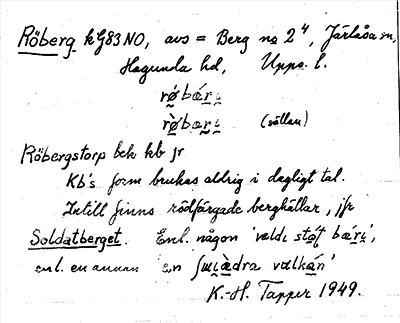 Röberg kG83NO, avs = Berg no 2⁴, Järlåsa sn,
Hagunda hd, Upps. l.
rǿbár̥ɩ
rø̀bar̥ɩ (sällan)
Röbergstorp bek kb jr
Kb's form brukas aldrig i dagligt tal.
Intill finns rödfärgade berghällar, jfr
Soldatberget. Enl. någon 'veldɩ bár̥ɩ',
enl. en annan 'en
K.-H. Tapper 1949.